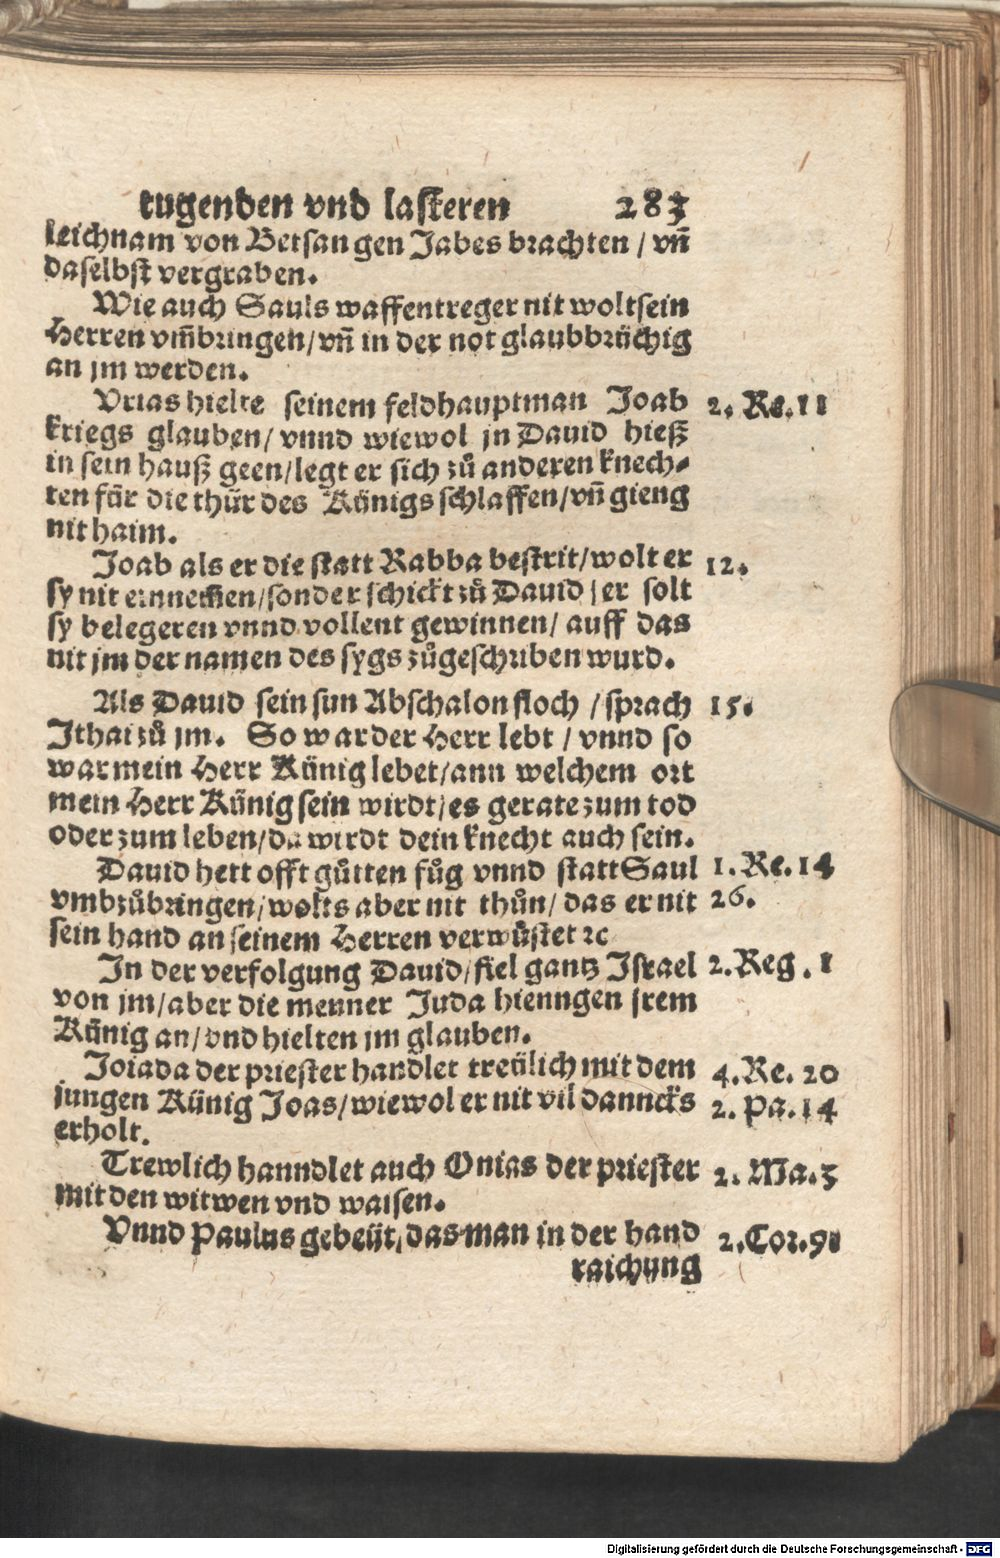 tugenden vnd lasteren 283
leichnam von Betsan gen Jabes brachten / vñ
daselbst vergraben.
Wie auch Sauls waffentreger nit wolt sein
Herren vm̃bringen/vñ in der not glaubbrüchig
an jm werden.
Vrias hielte seinem feldhauptman Joab 2. Re. 11
kriegs glauben/ vnnd wiewol jn Dauid hieß
in sein hauß geen/legt er sich zů anderen knech⸗
ten für die thür des Künigs schlaffen/vñ gieng
nit haim.
Joab als er die statt Rabba bestrit/wolt er 12.
sy nit einnem̃en/sonder schickt zů Dauid/er solt
sy belegeren vnnd vollent gewinnen/ auff das
nit jm der namen des sygs zůgeschriben wurd.
Als Dauid sein sun Abschalon floch /sprach 15.
Jthai zů jm. So war der Herr lebt / vnnd so
war mein Herr Künig lebet/ann welchem ort
mein Herr Künig sein wirdt/es gerate zum tod
oder zum leben/da wirdt dein knecht auch sein.
Dauid hett offt gůtten fůg vnnd statt Saul 1. Re. 14
vmbzůbringen/wolts aber nit thůn/ das er nit 26.
sein hand an seinem Herren verwüstet ꝛc
In der verfolgung Dauid/fiel gantz Israel 2. Reg. 1
von jm/aber die menner Juda hienngen jrem
Künig an/vnd hielten jm glauben.
Joiada der priester handlet treülich mit dem 4. Re. 20
jungen Künig Joas/wiewol er nit vil dannck's 2. Pa. 14
erholt.
Trewlich hanndlet auch Onias der priester 2. Ma. 3
mit den witwen vnd waisen.
Vnnd Paulus gebeüt, das man in der hand 2. Cor. 9
raichung
Digitalisierung gefördert durch die Deutsche Forschungsgemeinschaft - DFG